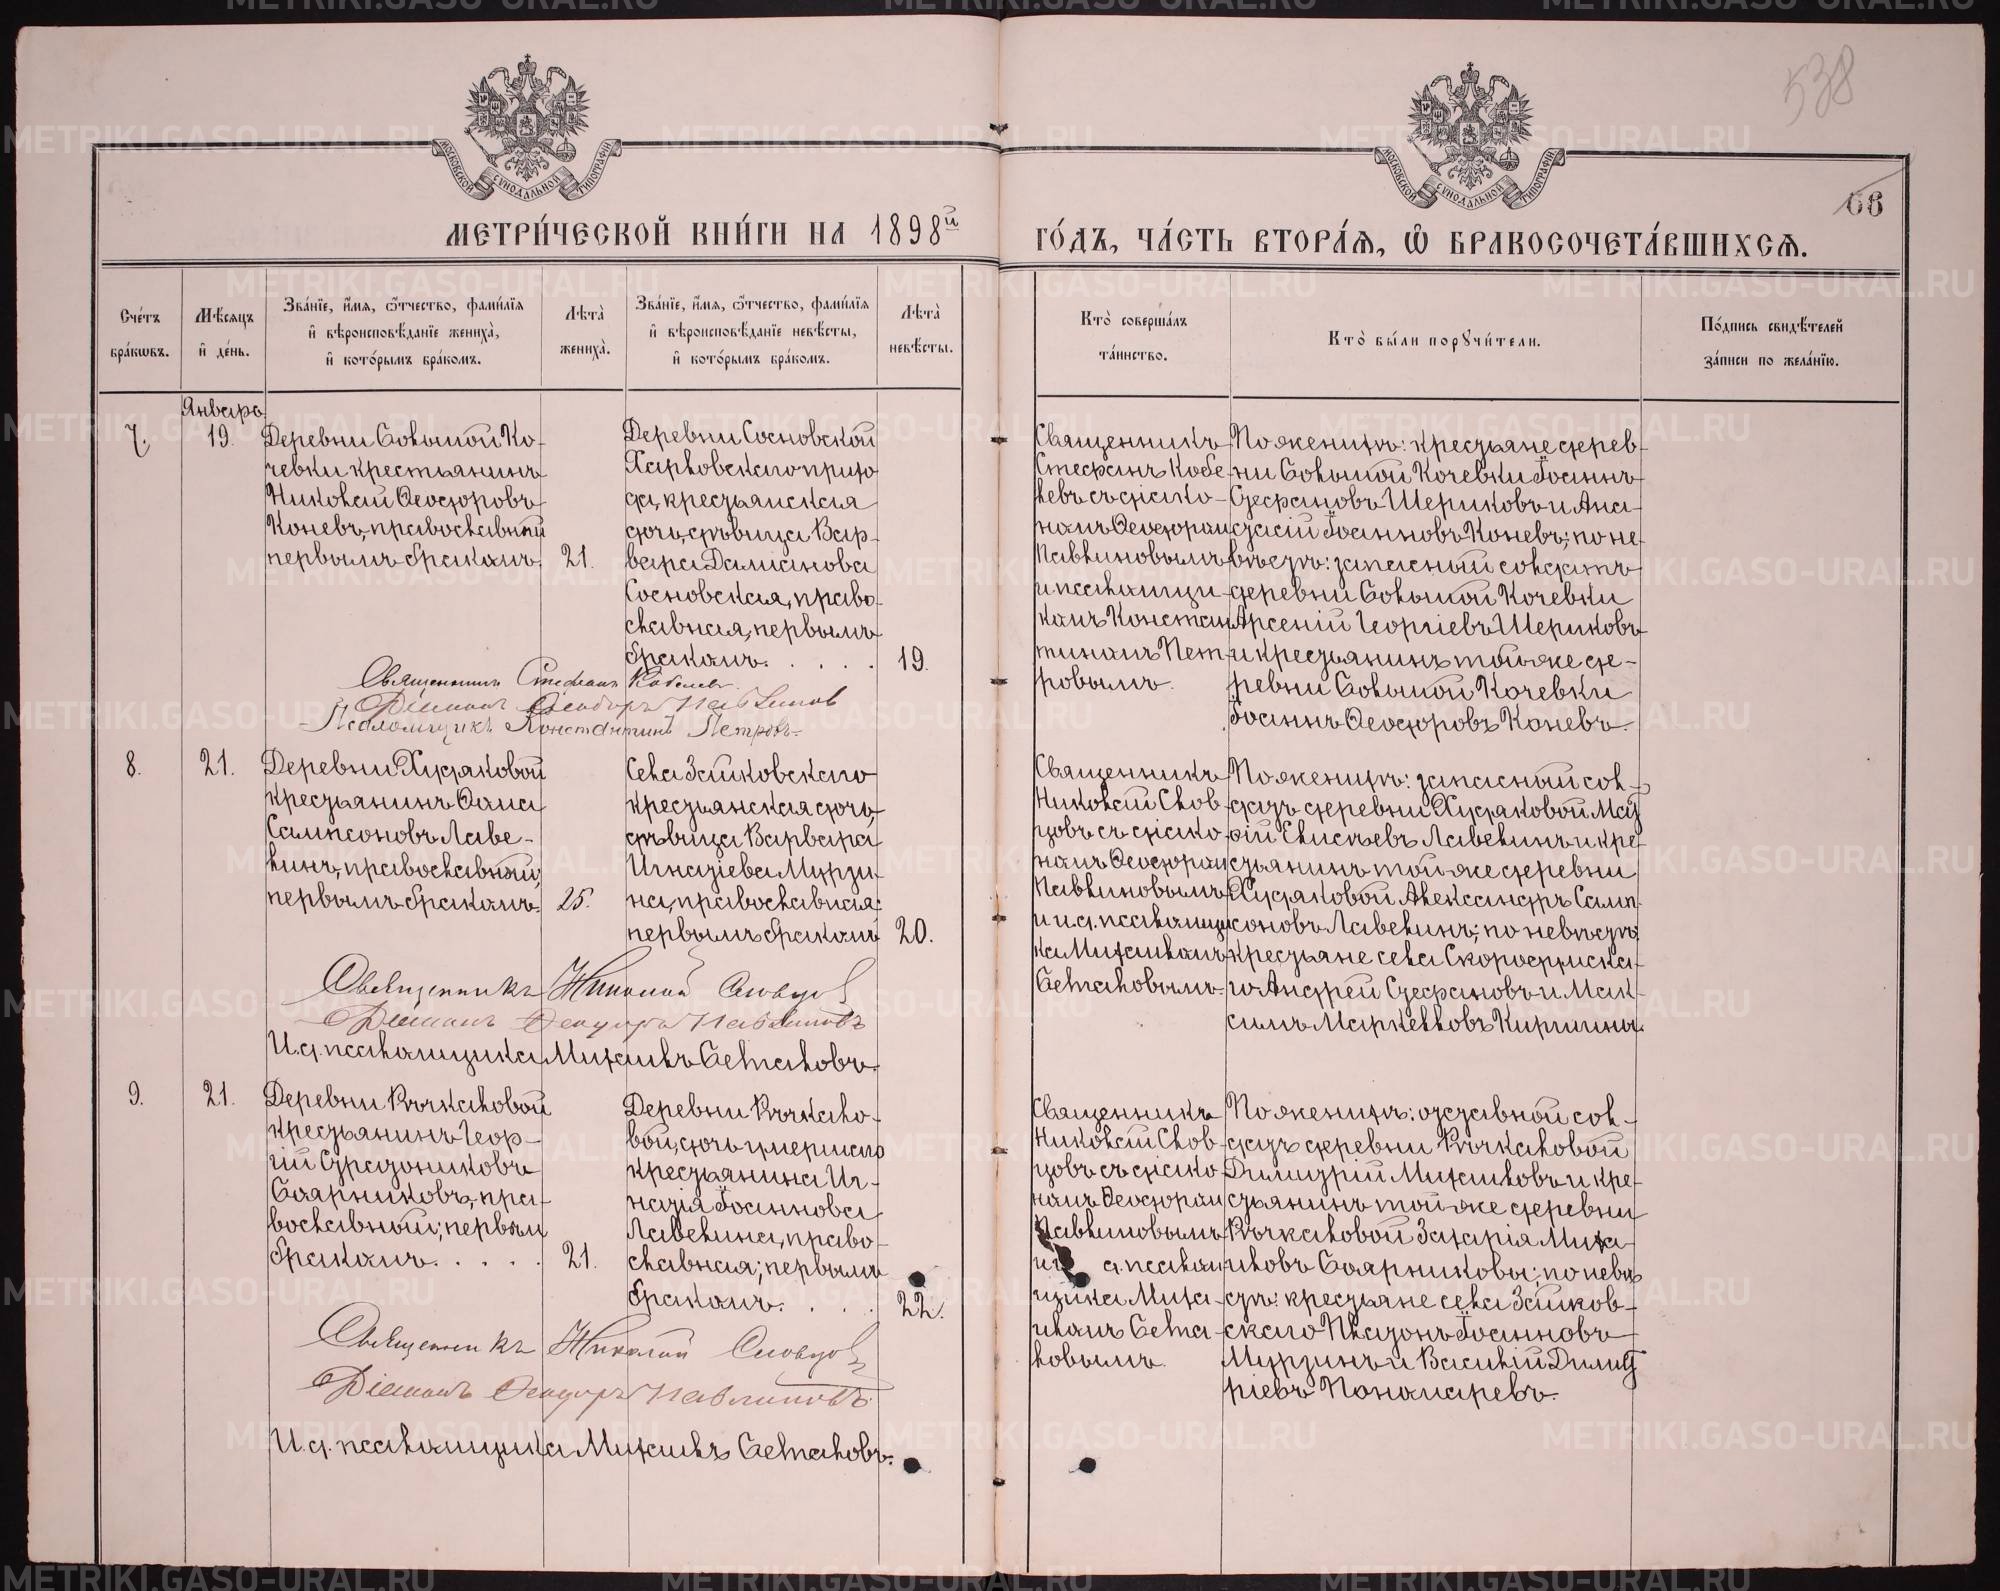 538
66
МОСКОВСКОЙ СѴНОДАЛЬНОЙ ТИПОГРАФІИ
МОСКОВСКОЙ СѴНОДАЛЬНОЙ ТИПОГРАФІИ
МЕТРИ́ЧЕСКОЙ КНИ́ГИ НА 1898й
ГО́ДЪ, ЧА́СТЬ ВТОРА́Я, Ѿ БРАКОСОЧЕТА́ВШИХСЯ.
Сче́тъ
бра́кѡвъ.
Мѣ́сяцъ
и҆ де́нь.
Зва́нїе, и҆́мя, ѻ҆́тчество, фами́лїя
и҆ вѣроисповѣ́данїе жениха̀,
и҆ кото́рымъ бра́комъ.
Лѣ́та
жениха̀.
Зва́нїе, и҆́мя, ѻ҆́тчество, фами́лїя
и҆ вѣроисповѣ́данїе невѣ́сты,
и҆ кото́рымъ бра́комъ.
Лѣ́та
невѣ́сты.
Кто̀ соверша́лъ
та́инство.
Кто̀ бы́ли порꙋчи́тели.
По́дпись свидѣ́телей
за́писи по жела́нїю.
Января
7.
19.
Деревни Большой Ко-
чевки крестьянинъ
Николай Ѳеодоровъ
Коневъ, православный
первымъ бракомъ.
21.
Деревни Сосновской
Харловскаго прихо
да, крестьянская
дочь, дѣвица Вар-
вара Даміанова
Сосновская, право-
славная, первымъ
бракомъ. . . . .
19.
Священникъ
Стефанъ Кобе
левъ съ діако-
номъ Ѳеодором
Павлиновымъ
и псаломщи-
комъ Констан
тиномъ Пет
ровымъ.
По женихѣ: крестьяне дерев-
ни Большой Кочевки Іоаннъ
Стефановъ Шориковъ и Ана-
стасій Іоанновъ Коневъ; по не-
вѣстѣ: запасный солдатъ
деревни Большой Кочевки
Арсеній Георгіевъ Шориковъ
и крестьянинъ той же де-
ревни Большой Кочевки
Іоаннъ Ѳеодоровъ Коневъ.
Священникъ Стефанъ Кобелевъ.
Діаконъ Ѳеодоръ Павлиновъ
Псаломщикъ Константинъ Петровъ.
8.
21.
Деревни Худяковой
крестьянинъ Ѳома
Сампсоновъ Лаве-
линъ, православный,
первымъ бракомъ.
25.
Села Зайковскаго
крестьянская дочь,
дѣвица Варвара
Игнатіева Мурзи-
на, православная;
первымъ бракомъ
20.
Священникъ
Николай Слов-
цовъ съ діако
номъ Ѳеодором
Павлиновымъ
и и.д. псаломщи
ка Михаиломъ
Бѣляковымъ.
По женихѣ: запасный сол-
датъ деревни Худяковой Мат
ѳій Елисѣевъ Лавелинъ и кре-
стьянинъ той же деревни
Худяковой Александръ Самп-
соновъ Лавелинъ; по невѣстѣ:
крестьяне села Скородумска-
го Андрей Стефановъ и Мак-
симъ Маркелловъ
Священникъ Николай Словцовъ
Діаконъ Ѳеодоръ Павлиновъ
И.д. псаломщика Михаилъ
9.
21.
Деревни Рычкаловой
крестьянинъ Геор-
гій Стратониковъ
Бояркиковъ, пра-
вославный; первым
бракомъ. . . . .
21.
Деревни Рычкало-
вой, дочь умершаго
крестьянина Иг-
натія Іоаннова
Лавелина, право-
славная; первымъ
бракомъ. . . . .
22.
Священникъ
Николай Слов-
цовъ съ діако
номъ Ѳеодором
Павлиновымъ
псалом
щика Миха-
иломъ
По женихѣ: отставной сол-
датъ деревни Рычкаловой
Димитрій Михаиловъ и кре-
стьянинъ той же деревни
Рычкаловой Захарія Миха-
иловъ; по невѣ
стѣ: крестьяне села Зайков-
скаго Платонъ Іоанновъ
Мурзинъ и Василій Димит
ріевъ Пономаревъ.
Священникъ Николай Словцовъ
Діаконъ Ѳеодоръ Павлиновъ.
И.д. псаломщика Михаилъ
METRIKI.GASO-URAL.RU